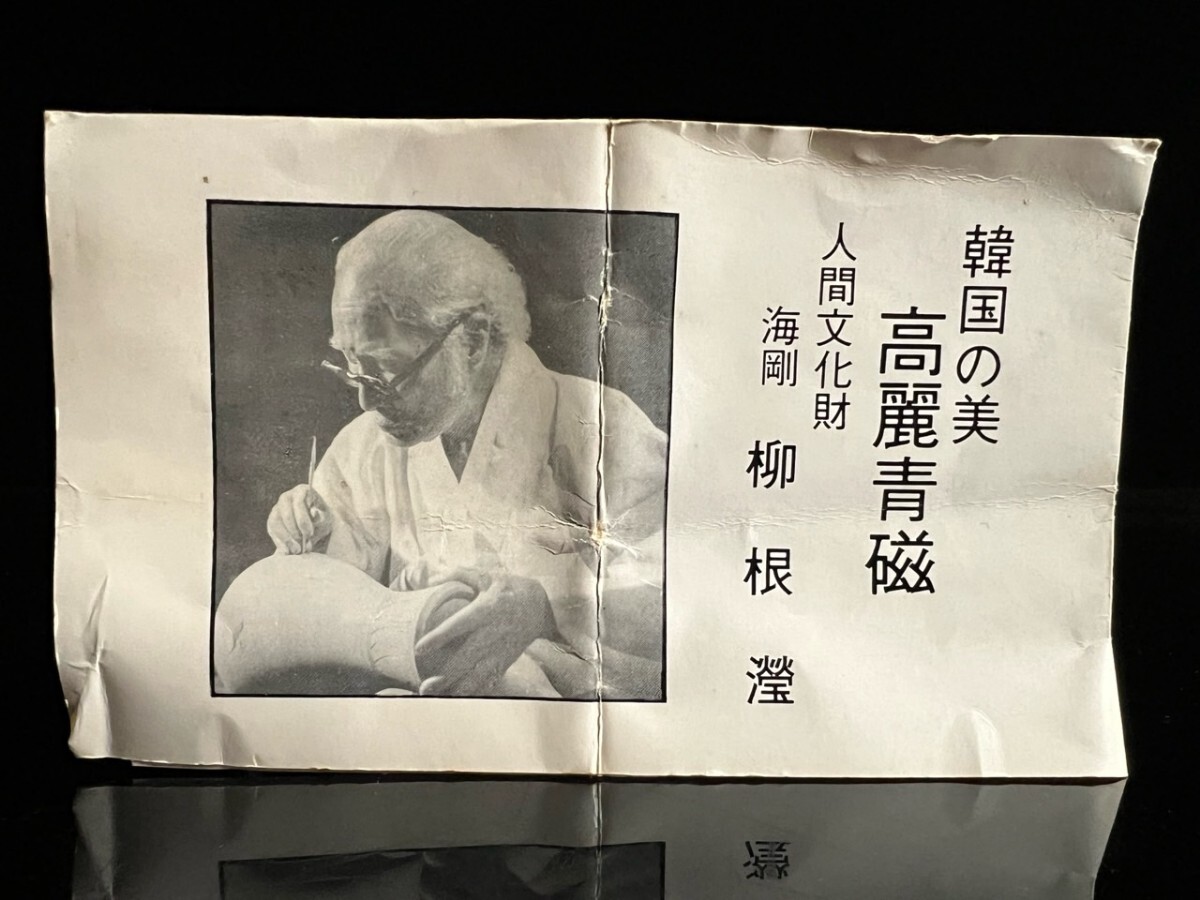 韓国の美
高麗青磁
人間文化財
海剛 柳根瀅